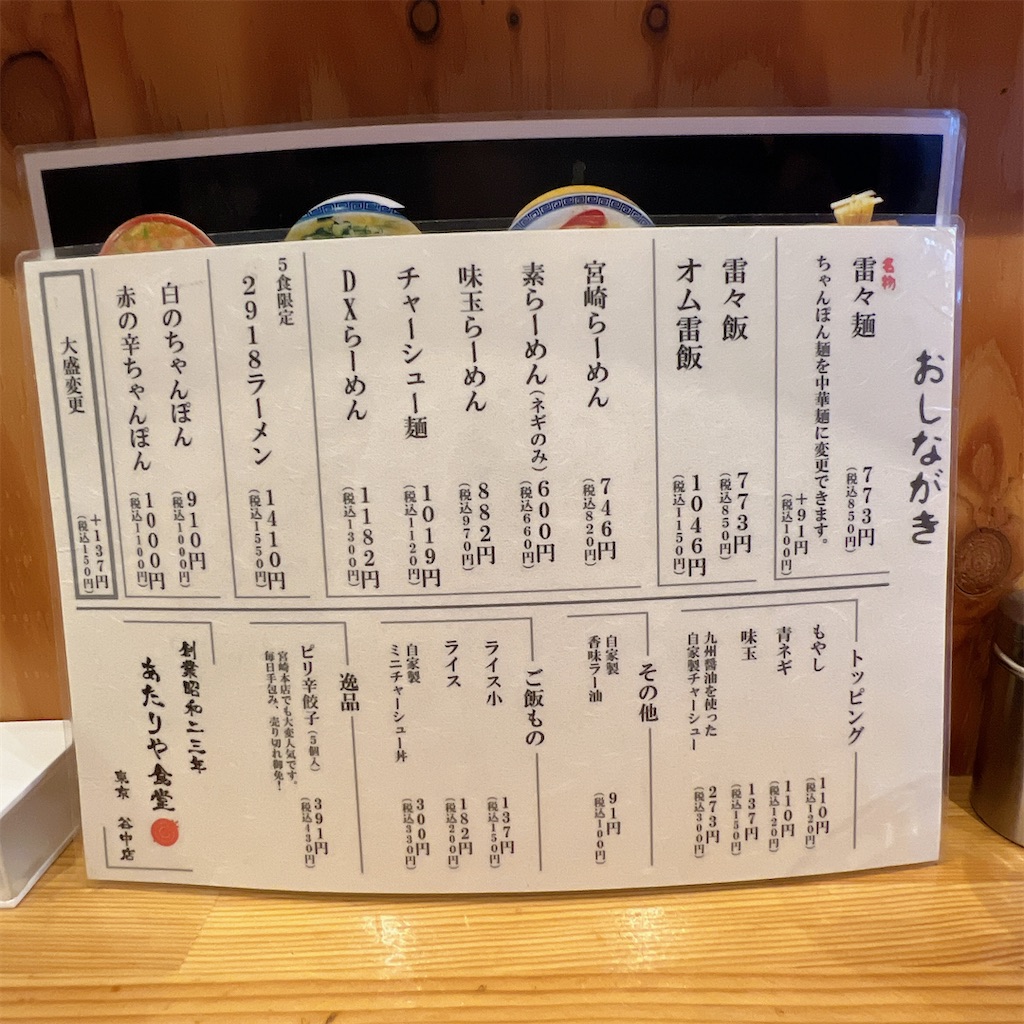 おしながき
名物
雷々麺
773円
(税込850円)
ちゃんぽん麺を中華麺に変更できます。
+91円
(税込100円)
雷々飯
773円
(税込850円)
オム雷飯
1046円
(税込1150円)
宮崎らーめん
746円
(税込820円)
素らーめん(ネギのみ)
600円
(税込660円)
味玉らーめん
882円
(税込970円)
チャーシュー麺
1019円
(税込1120円)
DXらーめん
1182円
(税込1300円)
5食限定
2918ラーメン
1410円
(税込1550円)
白のちゃんぽん
910円
(税込1000円)
赤の辛ちゃんぽん
1000円
(税込1100円)
大盛変更
+137円
(税込150円)
トッピング
もやし
110円
(税込120円)
青ネギ
110円
(税込120円)
味玉
137円
(税込150円)
九州醤油を使った
自家製チャーシュー
273円
(税込300円)
その他
自家製
香味ラー油
91円
(税込100円)
ご飯もの
ライス小
137円
(税込150円)
ライス
182円
(税込200円)
自家製
ミニチャーシュー丼
300円
(税込330円)
逸品
ピリ辛餃子(5個入)
391円
(税込430円)
宮崎本店でも大変人気です。
毎日手包み、売り切れ御免!
創業昭和二三年
あたりや食堂
東京 谷中店